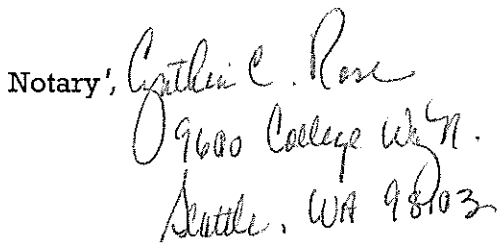 Notary', Cynthia C. Rose
9600 College Way N.
Seattle, WA 98103